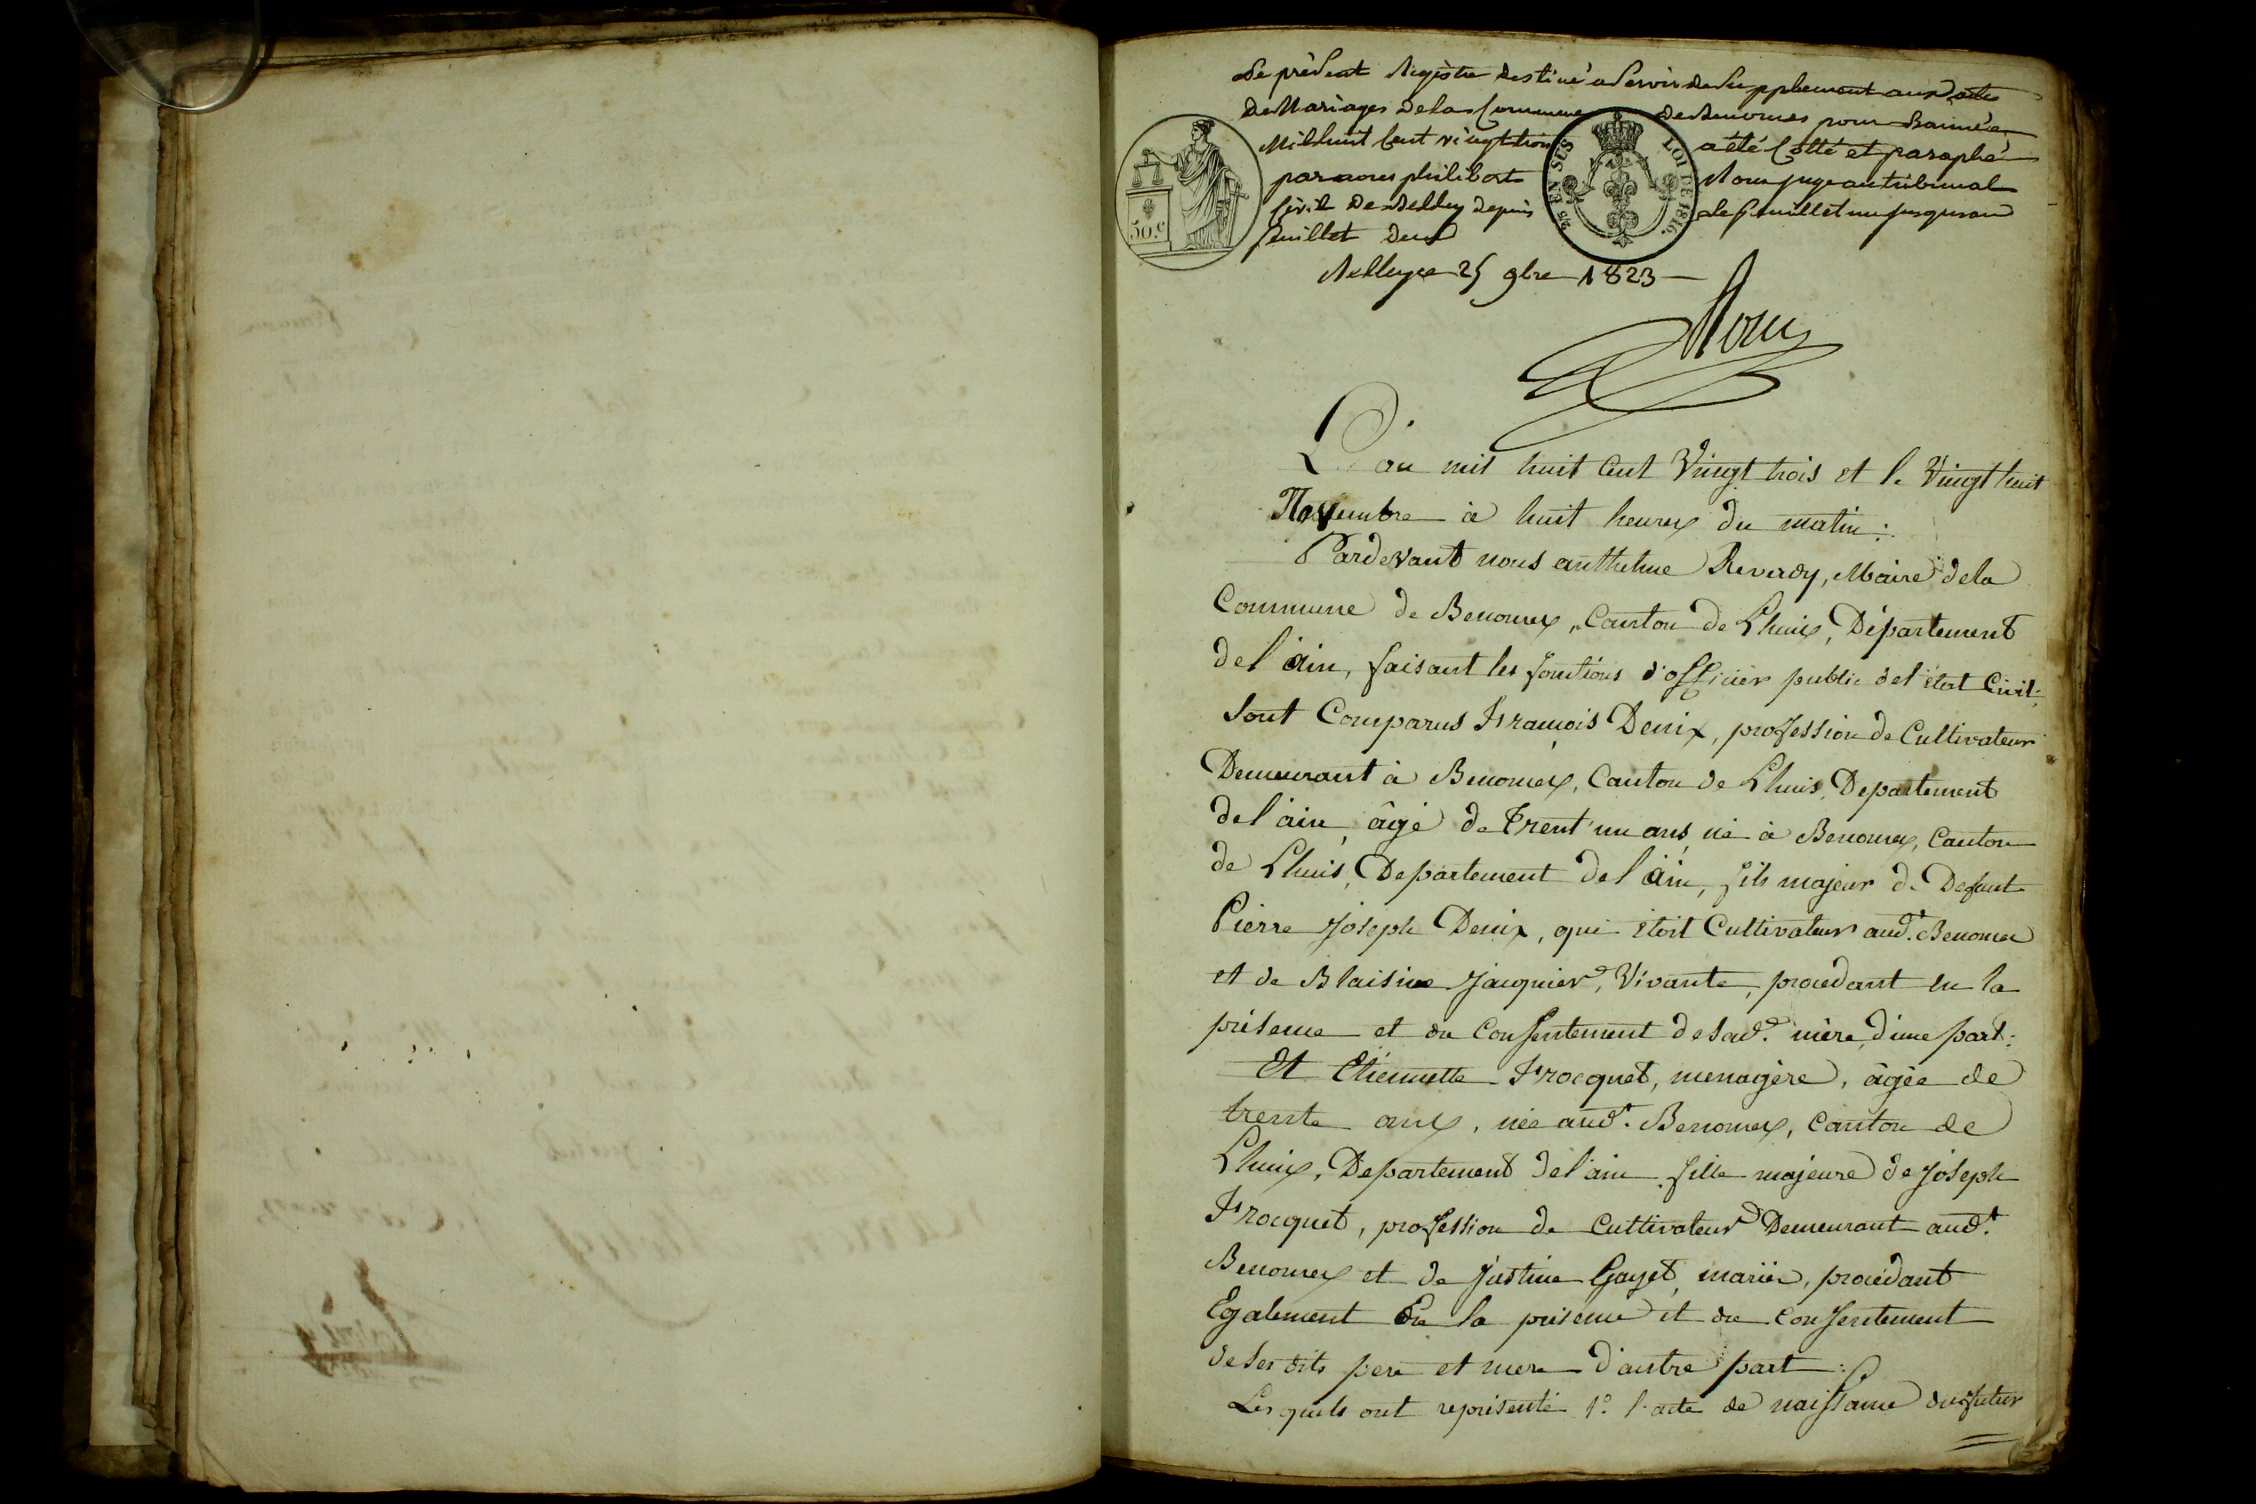 Le présent Régistre destiné a servir de Supplement aux actes
de Mariages de la Commune de Benonces pour l'année
Mil huit Cent vingt trois a été Cotté et paraphé
par nous philibert Roux juge au tribunal
Civil de Belley depuis le feuillet un jusqu'au
feuillet deux
50.c
EN SUS
LOI DE 1816.
Belley ce 25 9bre 1823
Roux
L'an mil huit Cent Vingt trois et le Vingt huit
Novembre à huit heures du matin :
Pardevant nous anthelme Reverdy, Maire de la
Commune de Benonces, Canton de Lhuis, Département
de l'ain, faisant les fonctions d'officier public de l'état Civil ;
Sont Comparus François Denix, profession de Cultivateur
Demeurant à Benonces, Canton de Lhuis, Departement
de l'ain, âgé de Trent'un ans, né à Benonces, Canton
de Lhuis, Departement de l'ain, fils majeur de Defunt
Pierre Joseph Denix, qui étoit Cultivateur aud.t Benonces
et de Blaisine Jacquier, Vivante, procedant en la
présence et du Consentement de sad.e mère, d'une part :
Et Etiennette Frocquet, menagère, âgée de
trente ans, née aud.t Benonces, Canton de
Lhuis, Departement de l'ain, fille majeure de Joseph
Frocquet, profession de Cultivateur Demeurant aud.t
Benonces et de Justine Gayet, mariés, procédant
Egalement En la présence et du Consentement
de ses dits pere et mere d'autre part :
Les quels ont représenté 1.o l'acte de naissance du futur